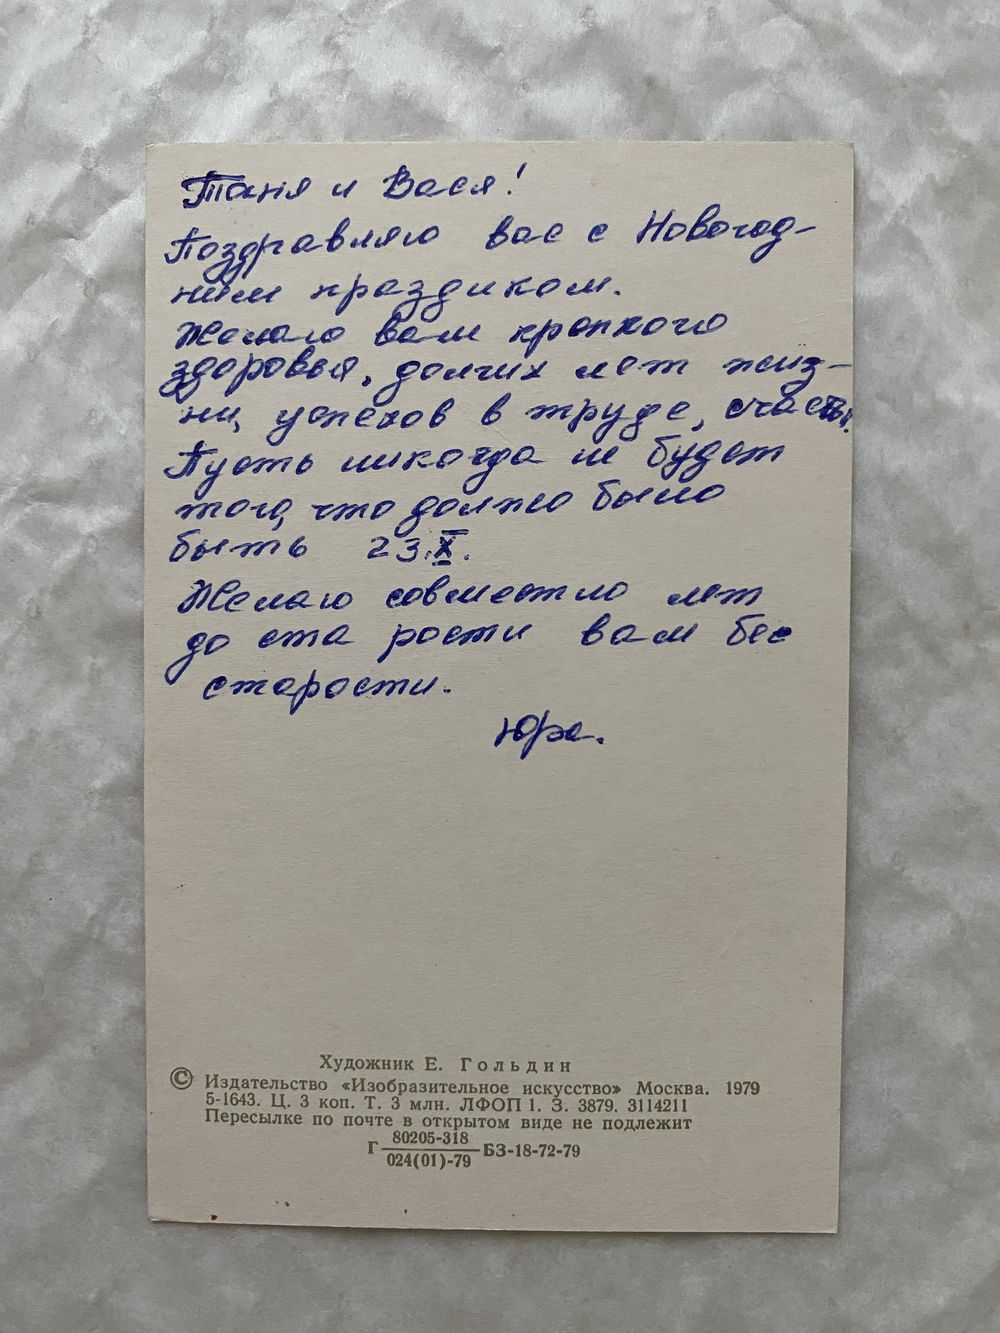 Таня и Вася!
Поздравляю вас с Новогод-
ним праздиком.
Желаю вам крепкого
здоровья, долгих лет жиз-
ни, успехов в труде, счастья.
Пусть никогда не будет
того, что должно было
быть 23.X.
Желаю совместно лет
до ста рости вам бес
старости.
Юра.
Художник Е. Гольдин
© Издательство «Изобразительное искусство» Москва. 1979
5-1643. Ц. 3 коп. Т. 3 млн. ЛФОП 1. З. 3879. 3114211
Пересылке по почте в открытом виде не подлежит
80205-318
Г БЗ-18-72-79
024(01)-79